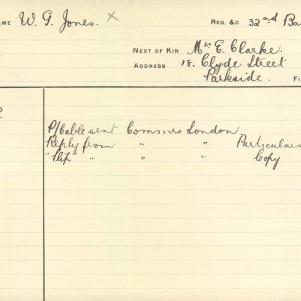 AME W. G. Jones. x REG. &C 32nd Ba
NEXT OF KIN Mrs E. Clarke.
ADDRESS 18. Clyde Street
Parkside. F
P/Cable sent Commrs London
Reply from " " Particulars
"Slip" " " Copy